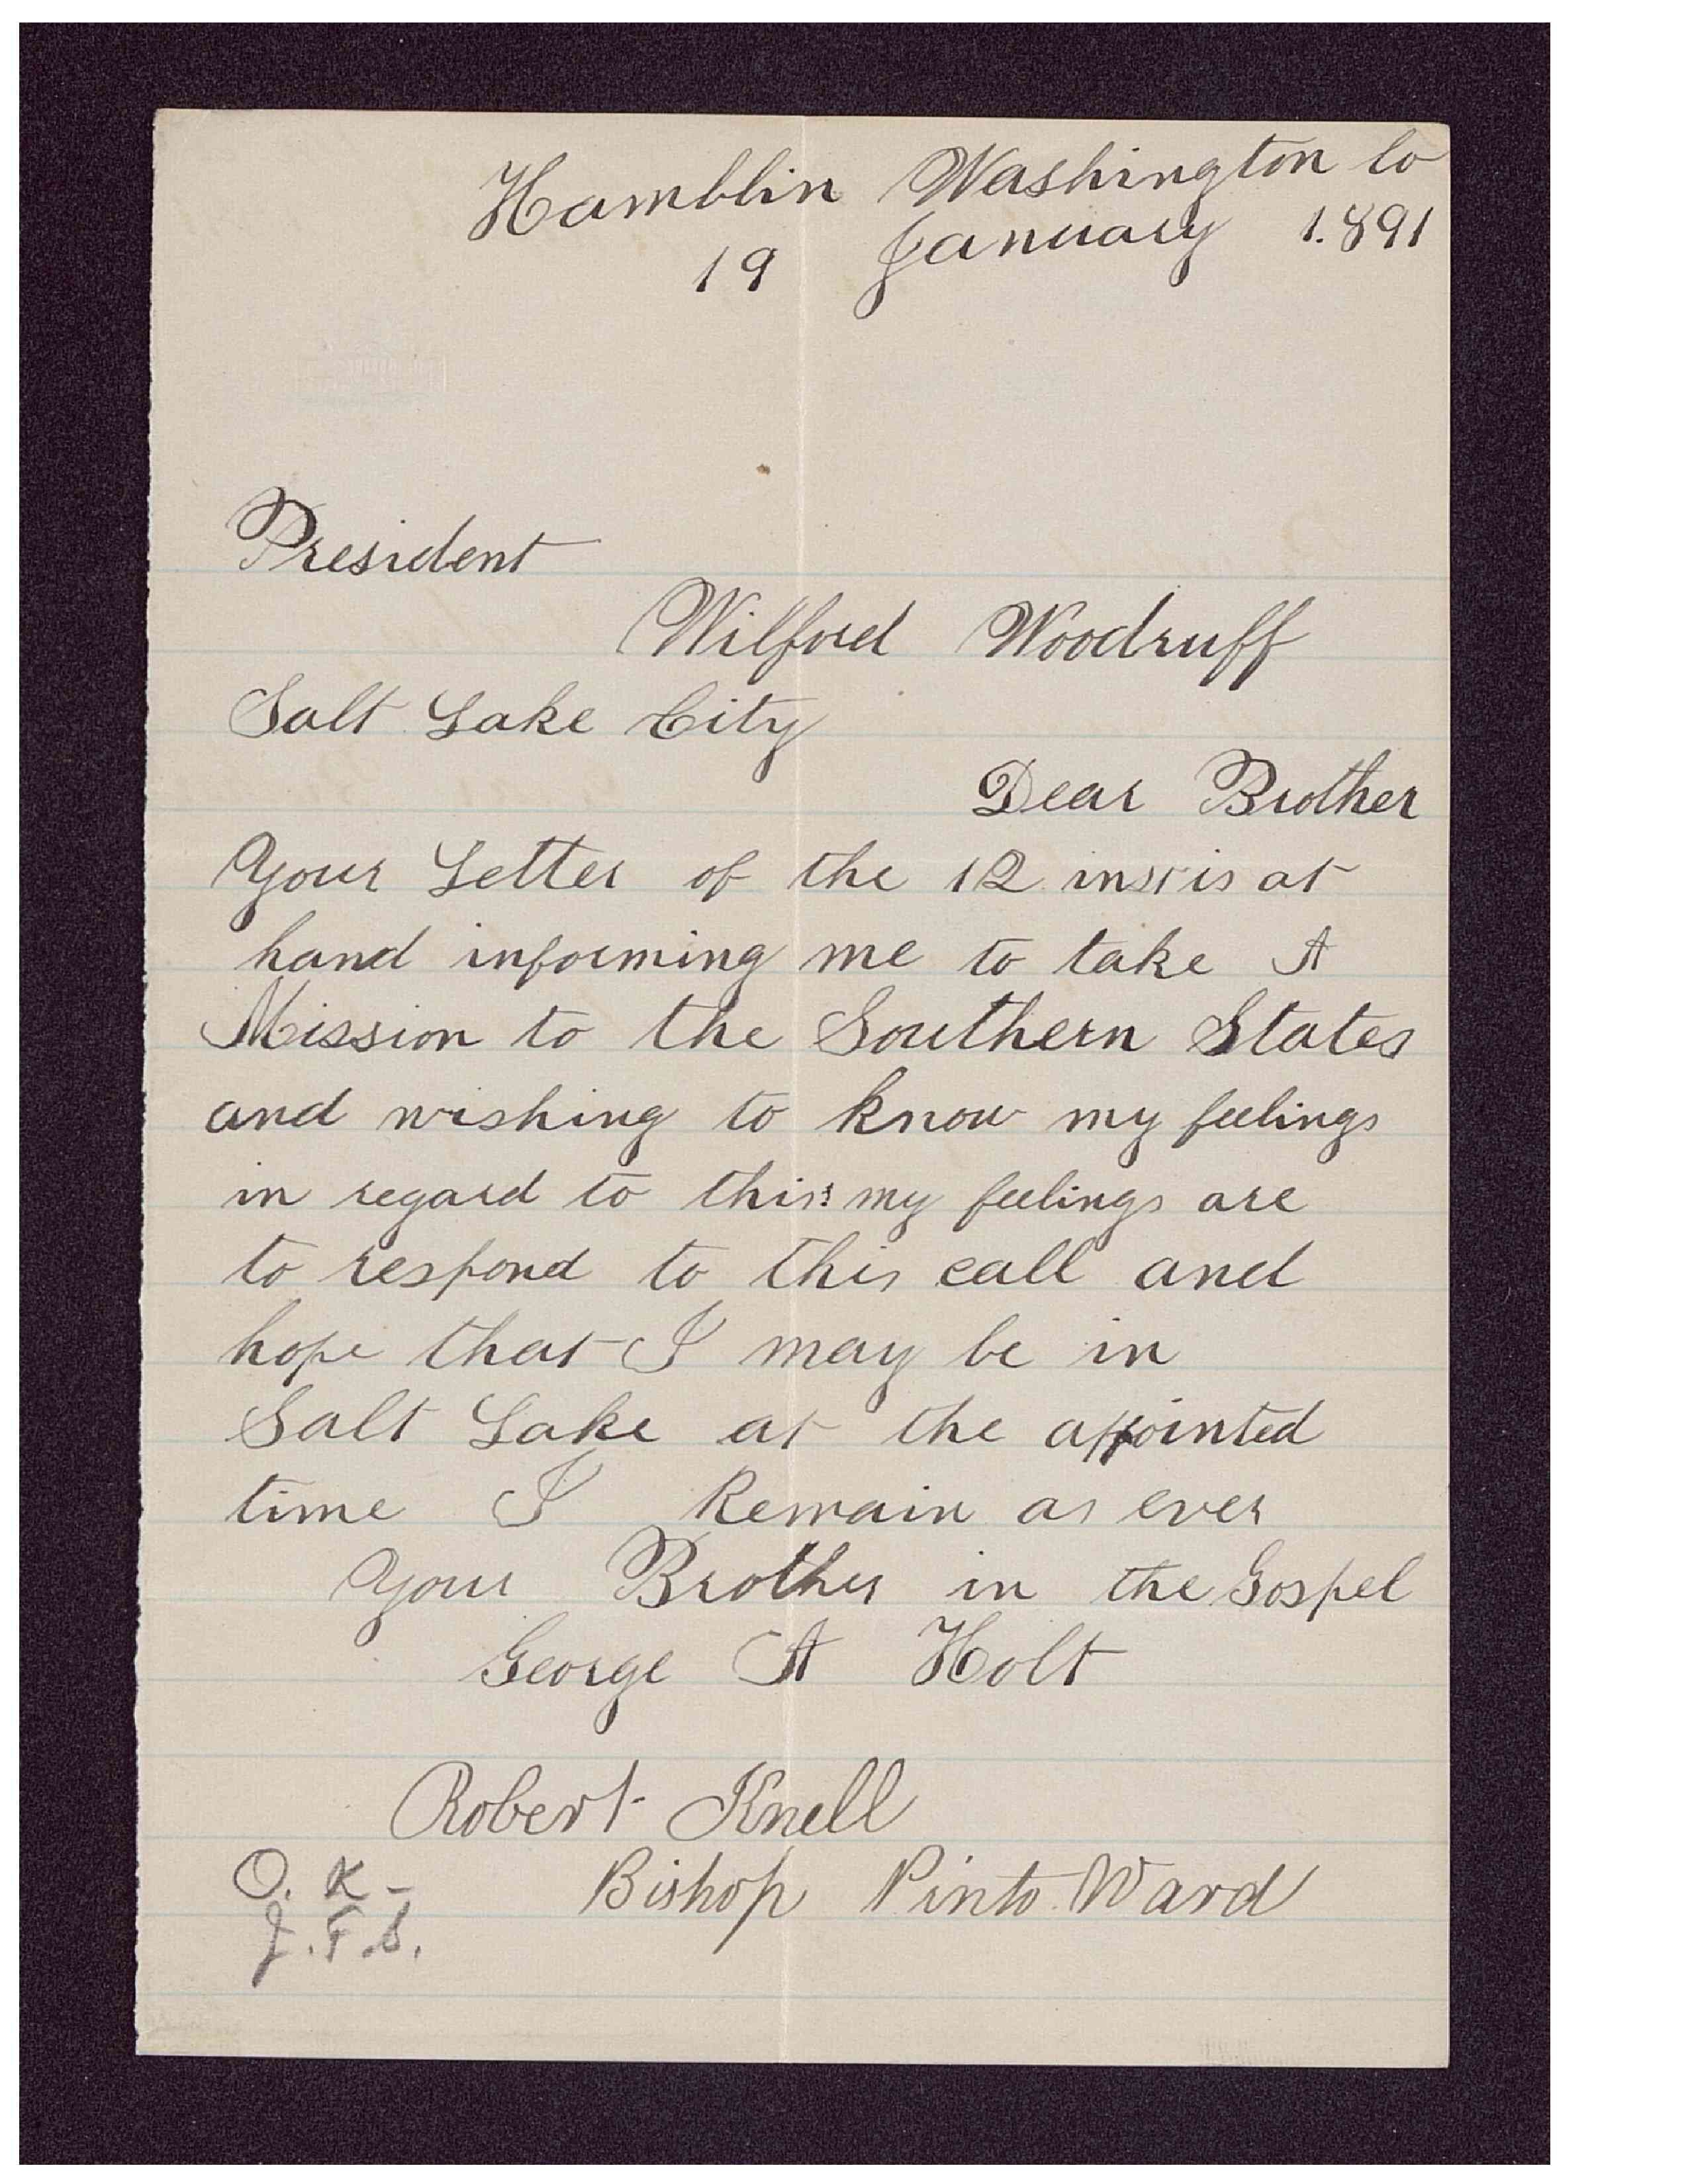 Hamblin Washington Co
19 January 1.891
President
Wilford Woodruff
Salt Lake City
Dear Brother
Your Letter of the 12 inst is at
hand informing me to take A
Mission to the Southern States
and wishing to know my feelings
in regard to this: my feelings are
to respond to this call and
hope that I may be in
Salt Lake at the appointed
time I Remain as ever
Your Brother in the Gospel
George A Holt
Robert Knell
Bishop Pinto Ward
O. K -
J. F. S.